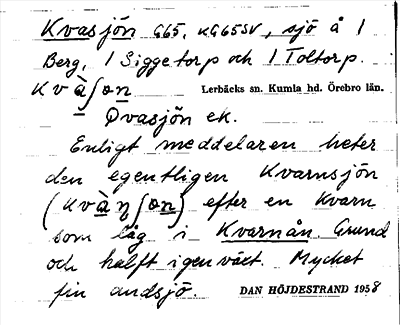 Kvasjön G65, KG65SV, sjö å 1
Berg, 1 Siggetorp och 1 Toltorp.
Kvàʃɷn Lerbäcks sn. Kumla hd. Örebro län.
Qvasjön ek.
Enligt meddelaren heter
den egentligen Kvarnsjön
(kvàηʃɷn) efter en kvarn
som låg i Kvarnån. Grund
och halft igenväxt. Mycket
fin andsjö. DAN HÖJDESTRAND 1958